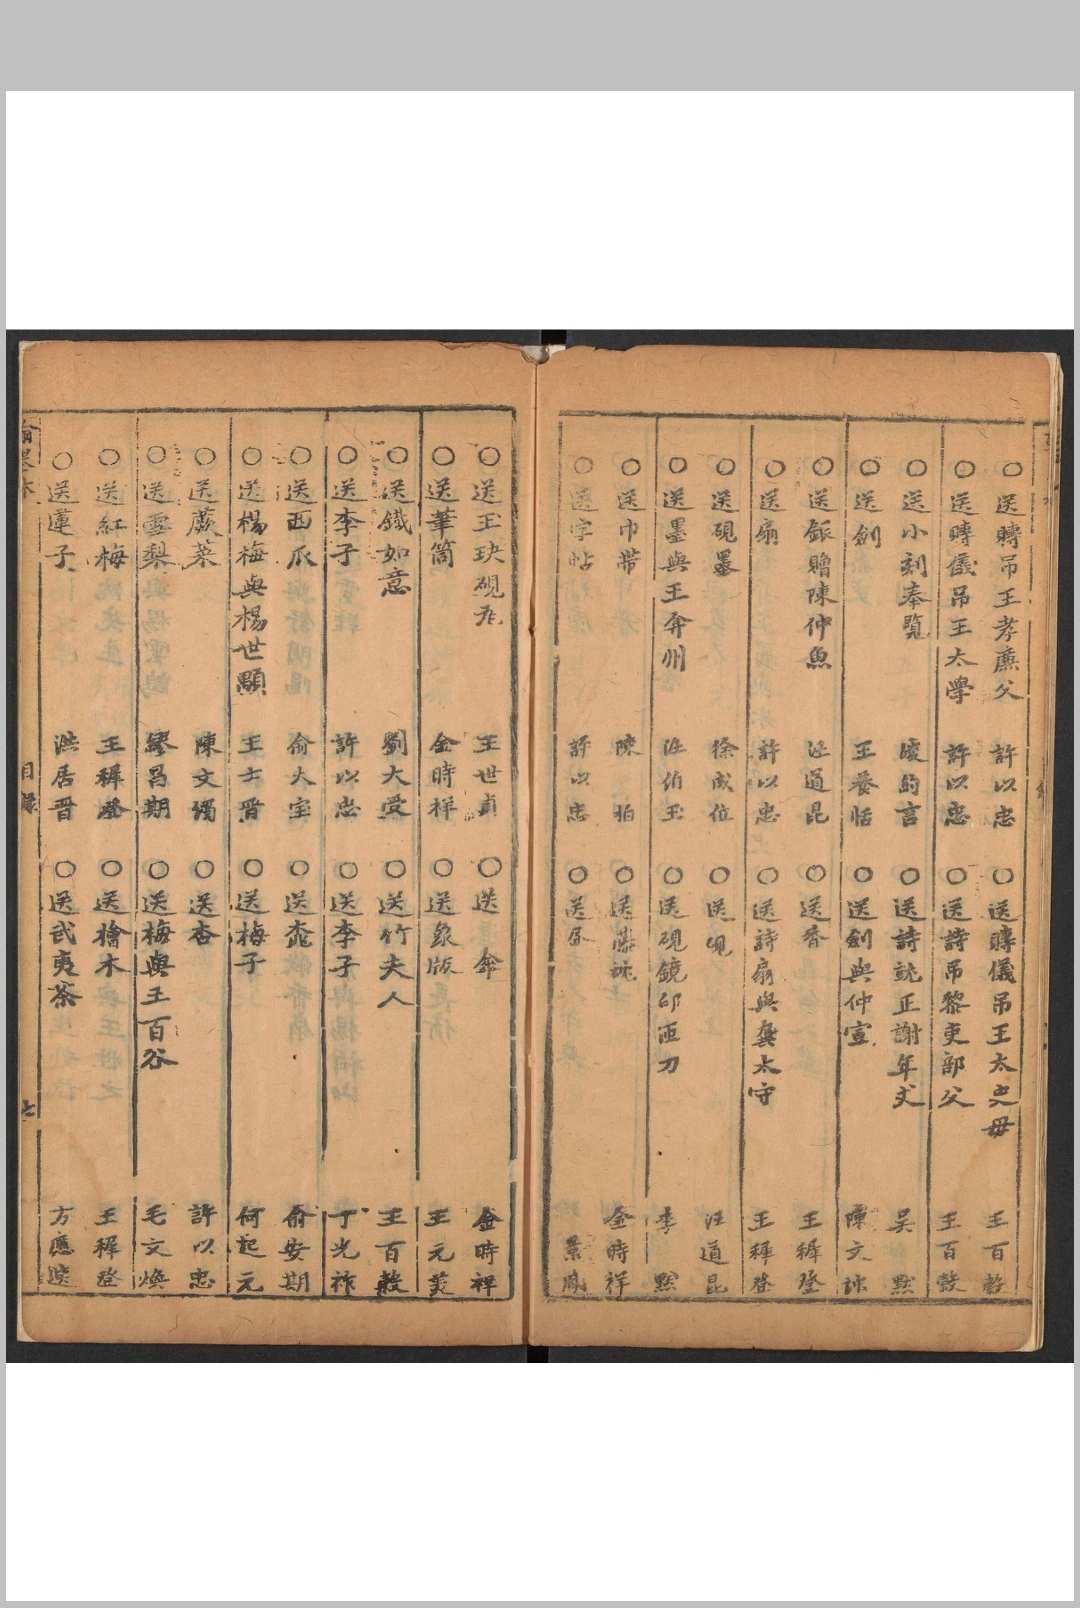 ○送賻吊王孝廉父 許以忠 ○送賻儀吊王太史母 王百穀
○送賻儀吊王太學 許以忠 ○送詩吊黎吏部父 王百穀
○送小刻奉覽 的言 ○送詩就正謝年丈 吳默
○送劍 王養恬 ○送劍與仲宣 陳文
○送銀贈陳仲魚 汪道昆 ○送香 王穉登
○送扇 許以忠 ○送詩扇與龔太守 王穉登
○送硯墨 徐成位 ○送硯 汪道昆
○送墨與王弇州 汪伯玉 ○送硯鏡印匣刀 李默
○送巾帶 陳 ○送 金時祥
○送字帖 許以忠 ○送 景鳳
○送玉玦硯 王世貞 ○送傘 金時祥
○送筆筒 金時祥 ○送象版 王元美
○送鐵如意 劉大受 ○送竹夫人 王百穀
○送李子 許以忠 ○送李子 丁光祚
○送西瓜 俞大室 ○送 俞安期
○送楊梅與楊世顯 王士晋 ○送梅子 何起元
○送蕨菜 陳文燭 ○送杏 許以忠
○送雪梨 繆昌期 ○送梅與王百谷 毛文煥
○送紅梅 王穉登 ○送檜木 王穉登
○送蓮子 洪居晋 ○送武夷茶 方應
目錄 七